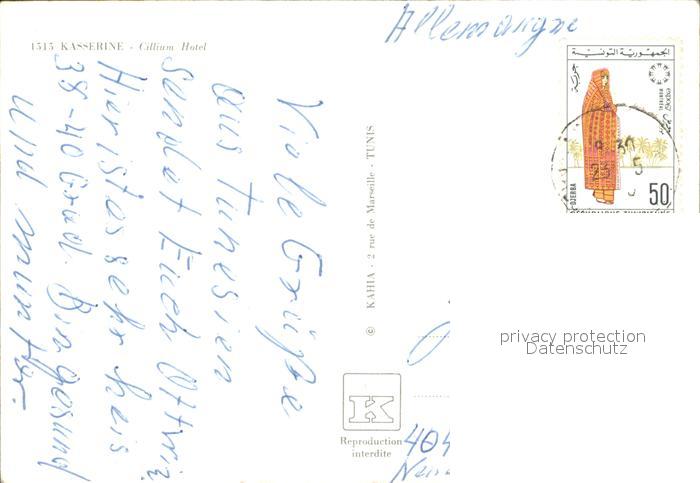 1515 KASSERINE - Cillium Hotel
Viele Grüße
aus Tunesien
sendet Euch
Hier ist es sehr heis
38-40 Grad. Bin gesund
und munter.
© KAHIA - 2 rue de Marseille - TUNIS
K
Reproduction
interdite
Allemangne
الجمهورية التونسية
جربة
50
DJERBA
REPUBLIQUE TUNISIENNE
privacy protection
Datenschutz
404